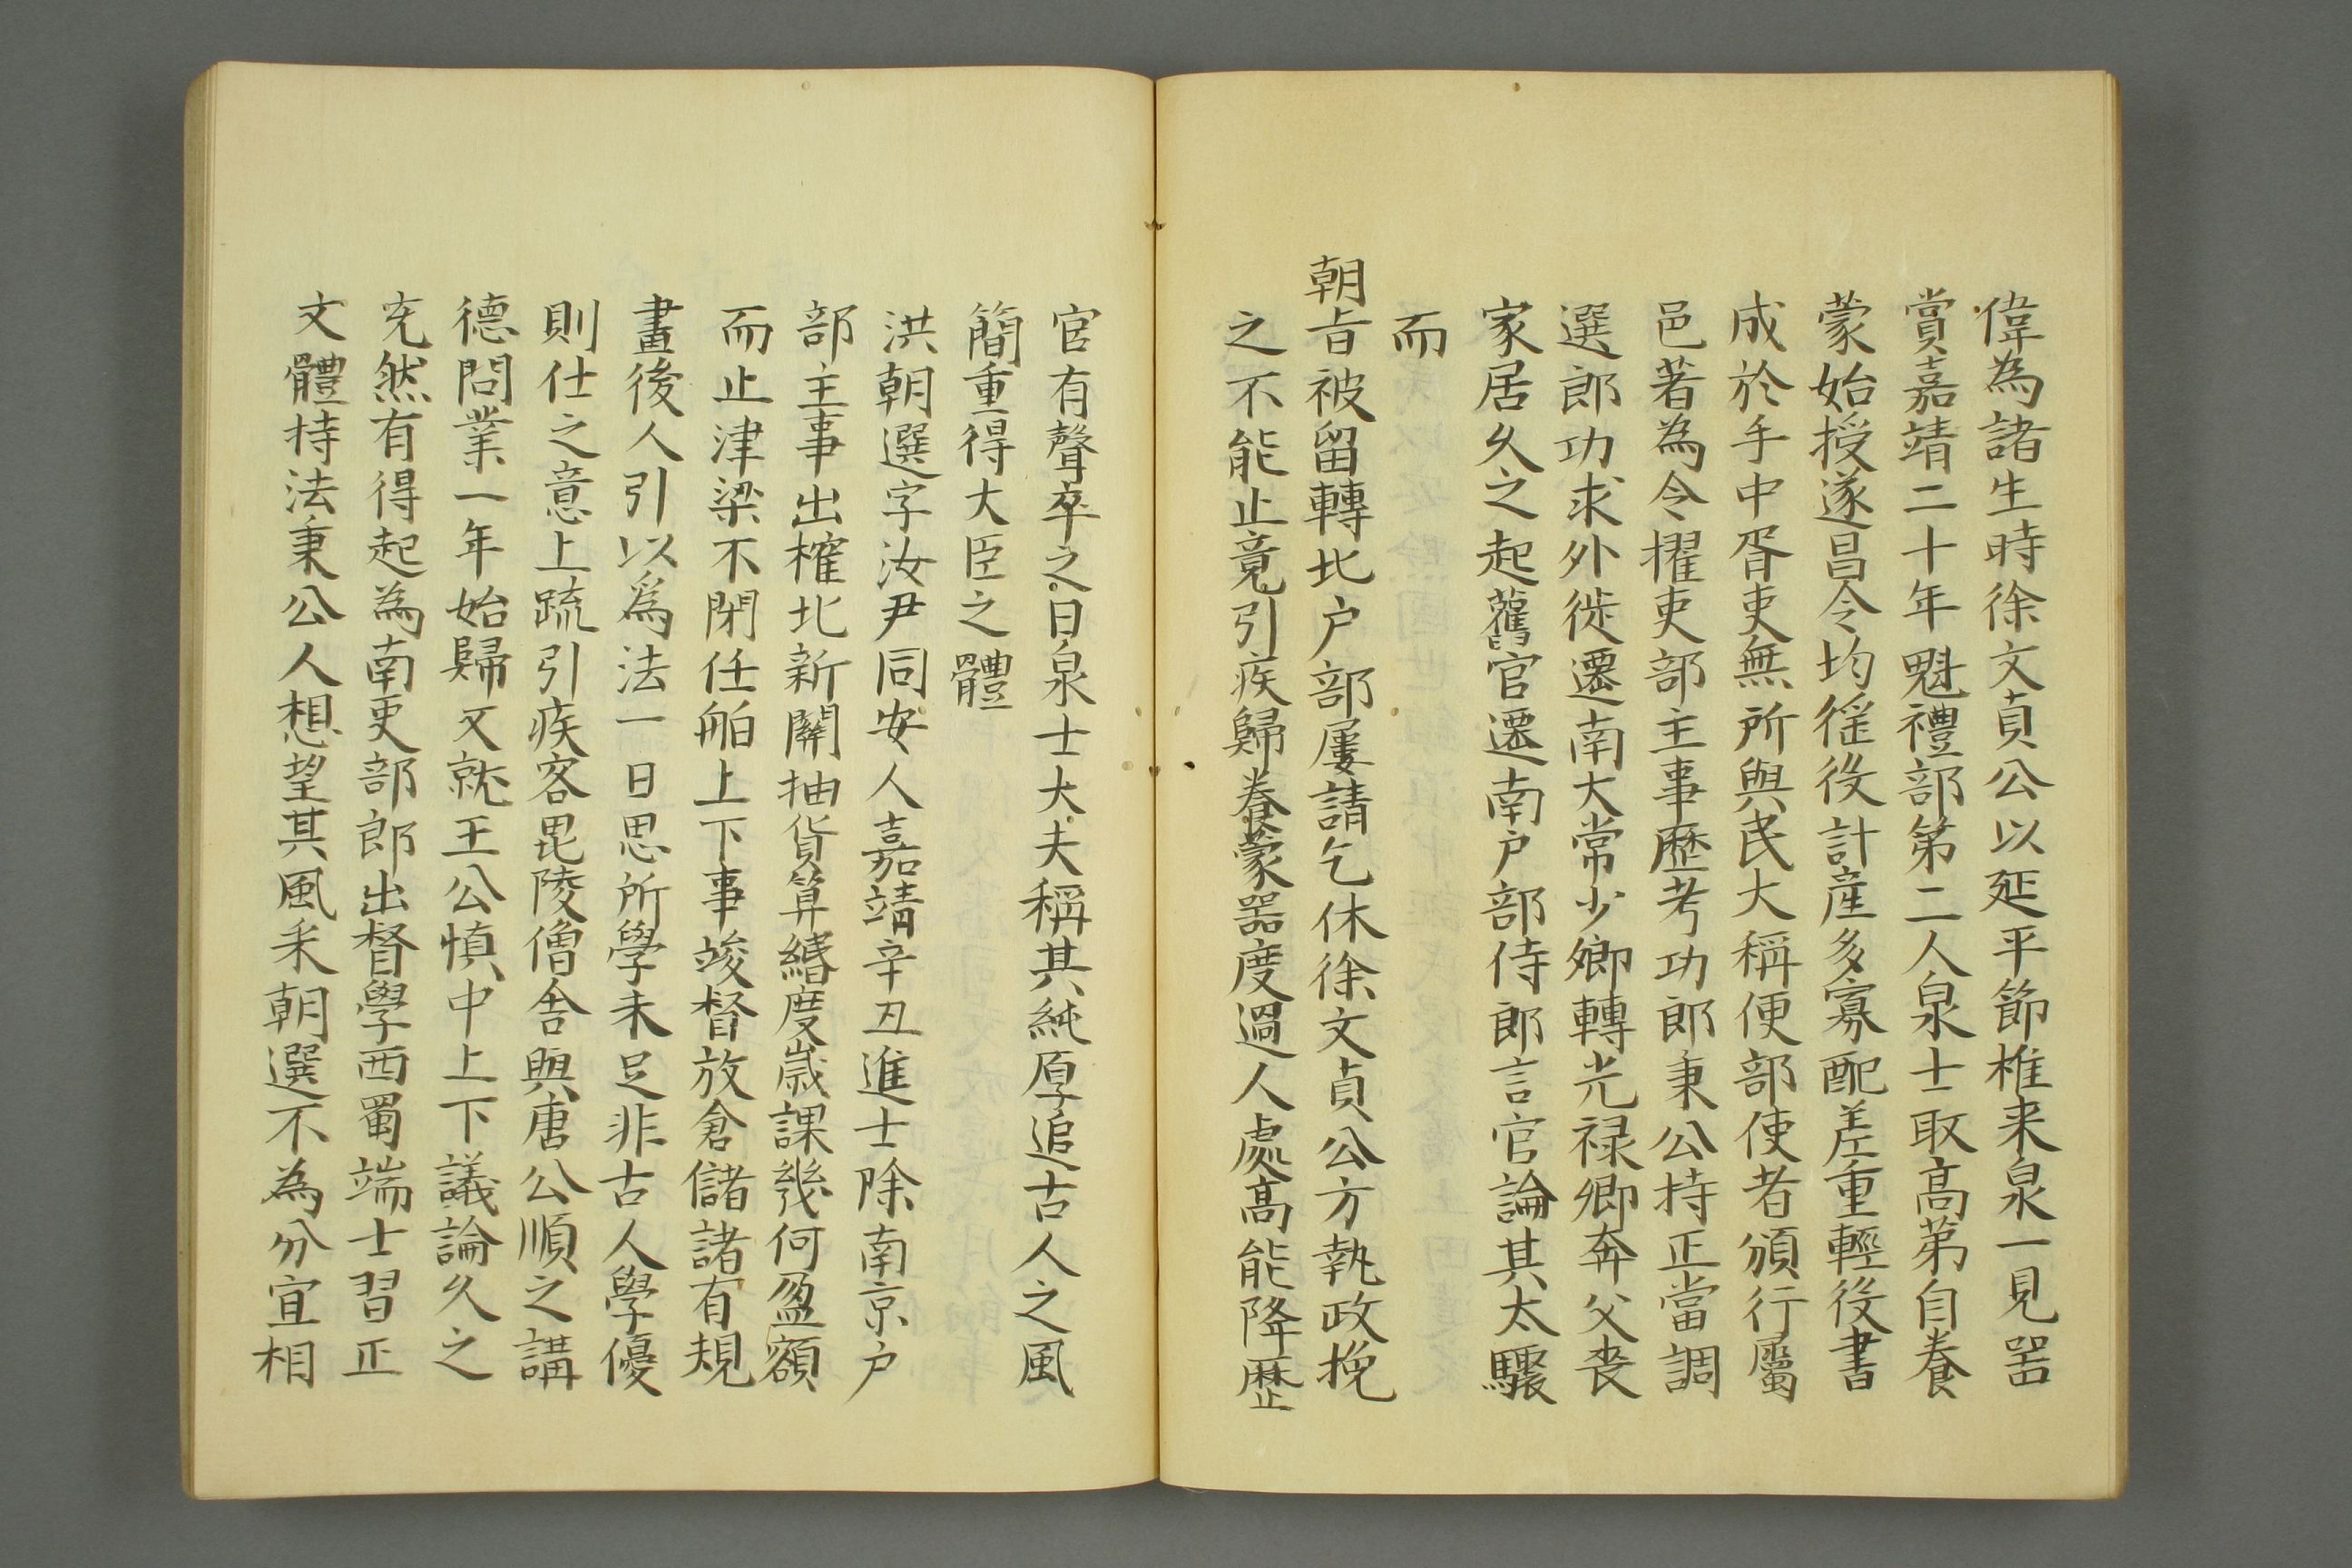 偉為諸生時徐文貞公以延平節推来泉一見噐
賞嘉靖二十年魁禮部第二人泉士取高苐自養
蒙始授遂昌令均徭役計産多寡配差重輕役書
成於手中胥吏無所與民大稱便部使者頒行屬
邑著為令擢吏部主事歷考功郎秉公持正當調
選郎功求外徙遷南大常少卿轉光禄卿奔父喪
家居久之起舊官遷南户部侍郎言官論其太驟
而
朝旨被留轉北户部屢請乞休徐文貞公方執政挽
之不能止竟引疾歸養蒙器度過人處高能降歷
官有聲卒之日泉士大夫稱其純厚追古人之風
簡重得大臣之體
洪朝選字汝尹同安人嘉靖辛丑進士除南京户
部主事出榷北新關抽貨算緡度嵗課幾何盈額
而止津梁不閉任舶上下事竣督放倉儲諸有規
畫後人引以爲法一日思所學未足非古人學優
則仕之意上疏引疾客毘陵僧舎與唐公順之講
德問業一年始歸又就王公慎中上下議論久之
充然有得起為南吏部郎出督學西蜀端士習正
文體持法秉公人想望其風采朝選不為分宜相